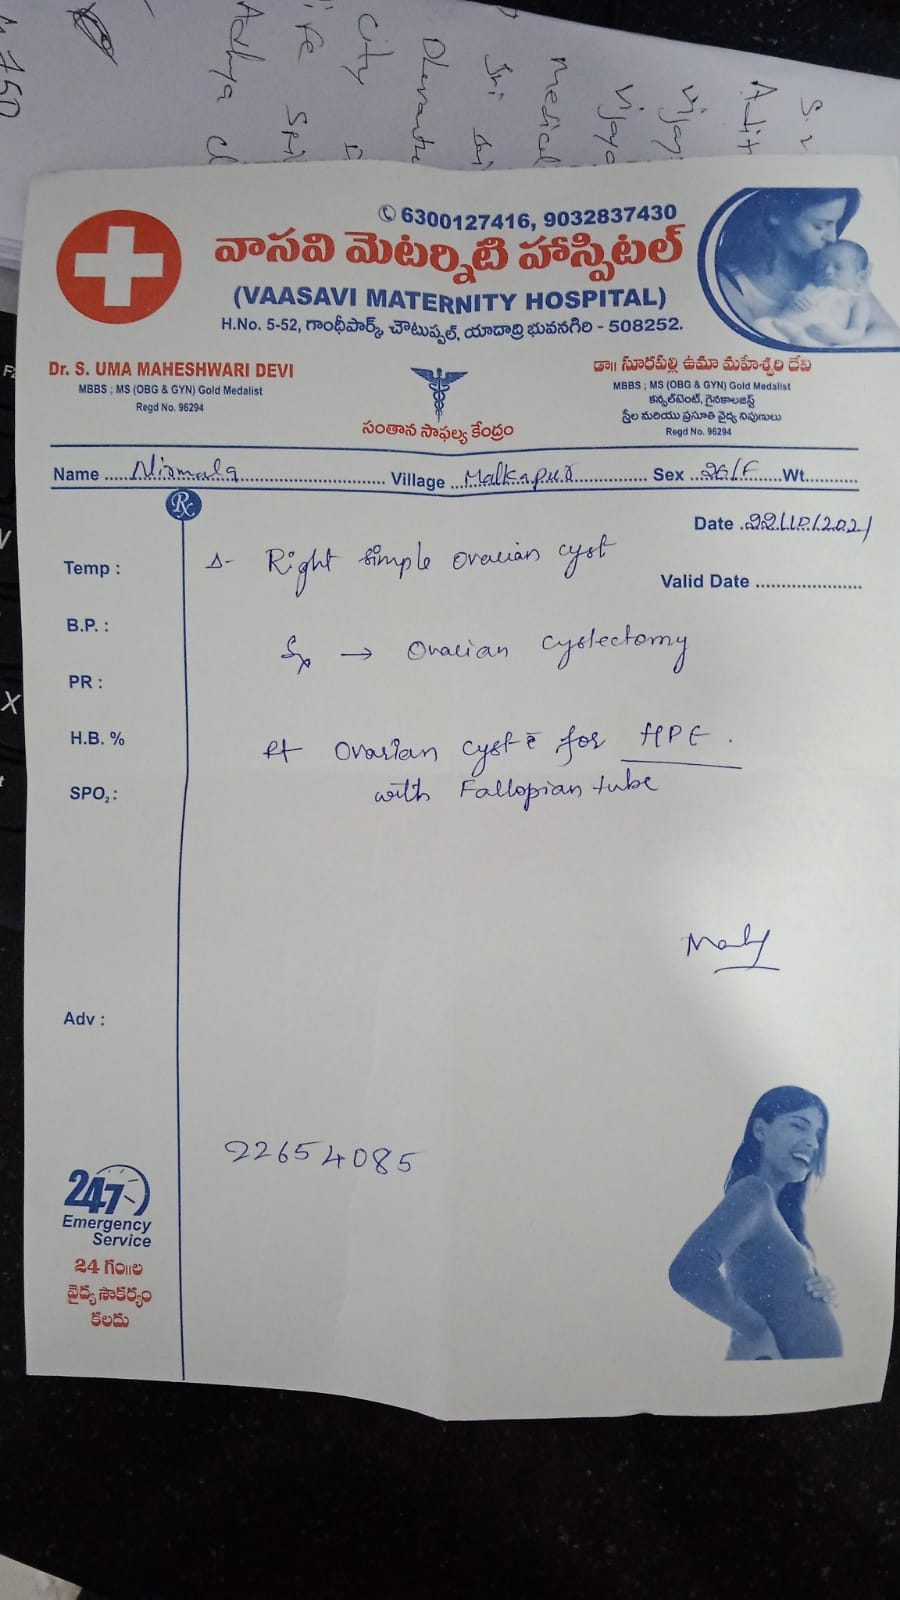 ✆ 6300127416, 9032837430
వాసవి మెటర్నిటి హాస్పిటల్
(VAASAVI MATERNITY HOSPITAL)
H.No. 5-52, గాంధీపార్క్, చౌటుప్పల్, యాదాద్రి భువనగిరి - 508252.
Dr. S. UMA MAHESHWARI DEVI
MBBS ; MS (OBG & GYN) Gold Medalist
Regd No. 96294
సంతాన సాఫల్య కేంద్రం
డా॥ సూరపల్లి ఉమా మహేశ్వరి దేవి
MBBS ; MS (OBG & GYN) Gold Medalist
కన్సల్టెంట్, గైనకాలజిస్ట్
స్త్రీల మరియు ప్రసూతి వైద్య నిపుణులు
Regd No. 96294
Name ..... Nirmala ..... Village ... Malkapur ..... Sex .. 26/F ..... Wt. .....
Rx
Date . 22/10/2021
Valid Date .....
Temp :
Δ- Right simple ovarian cyst
B.P. :
Sx → Ovarian cystectomy
PR :
H.B. %
Rt ovarian cyst c̄ for HPE .
with Fallopian tube
SPO₂ :
Adv :
22654085
247
Emergency
Service
24 గం॥ల
వైద్య సౌకర్యం
కలదు
Adhya
City
Medical
F2
X